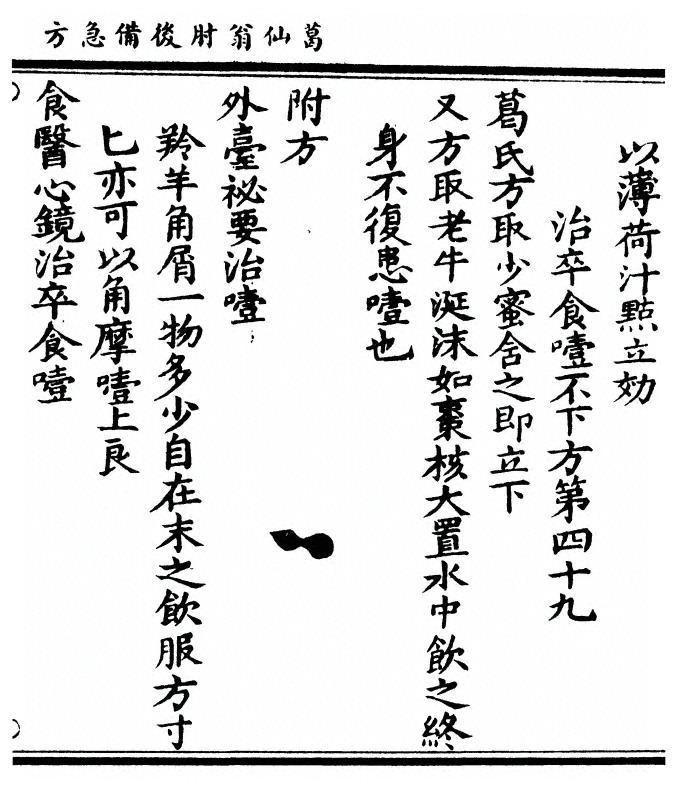 葛仙翁肘後備急方
以薄荷汁點立効
治卒食噎不下方第四十九
葛氏方取少蜜含之即立下
又方取老牛涎沫如棗核大置水中飲之終
身不復患噎也
附方
外臺祕要治噎
羚羊角屑一物多少自在末之飲服方寸
匕亦可以角摩噎上良
食醫心鏡治卒食噎